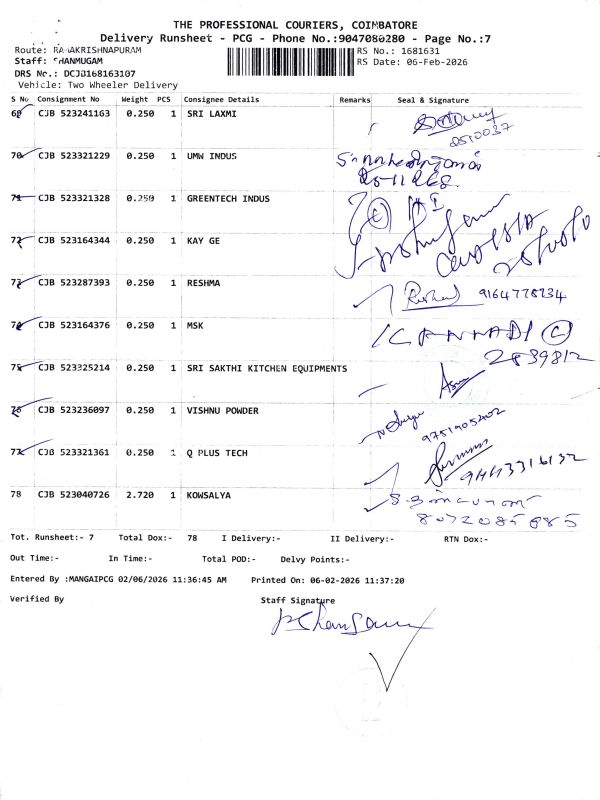 THE PROFESSIONAL COURIERS, COIMBATORE
Delivery Runsheet - PCG - Phone No.:9047080280 - Page No.:7
Route: RAMAKRISHNAPURAM RS No.: 1681631
Staff: SHANMUGAM RS Date: 06-Feb-2026
DRS No.: DCJB168163107
Vehicle: Two Wheeler Delivery
S No Consignment No Weight PCS Consignee Details Remarks Seal & Signature
69 CJB 523241163 0.250 1 SRI LAXMI
2510037
70 CJB 523321229 0.250 1 UMW INDUS
2511268
71 CJB 523321328 0.250 1 GREENTECH INDUS
72 CJB 523164344 0.250 1 KAY GE
73 CJB 523287393 0.250 1 RESHMA 9164778234
74 CJB 523164376 0.250 1 MSK
2839812
75 CJB 523325214 0.250 1 SRI SAKTHI KITCHEN EQUIPMENTS
76 CJB 523236097 0.250 1 VISHNU POWDER
77 CJB 523321361 0.250 1 Q PLUS TECH
78 CJB 523040726 2.720 1 KOWSALYA
8072085885
Tot. Runsheet:- 7 Total Dox:- 78 I Delivery:- II Delivery:- RTN Dox:-
Out Time:- In Time:- Total POD:- Delvy Points:-
Entered By :MANGAIPCG 02/06/2026 11:36:45 AM Printed On: 06-02-2026 11:37:20
Verified By Staff Signature